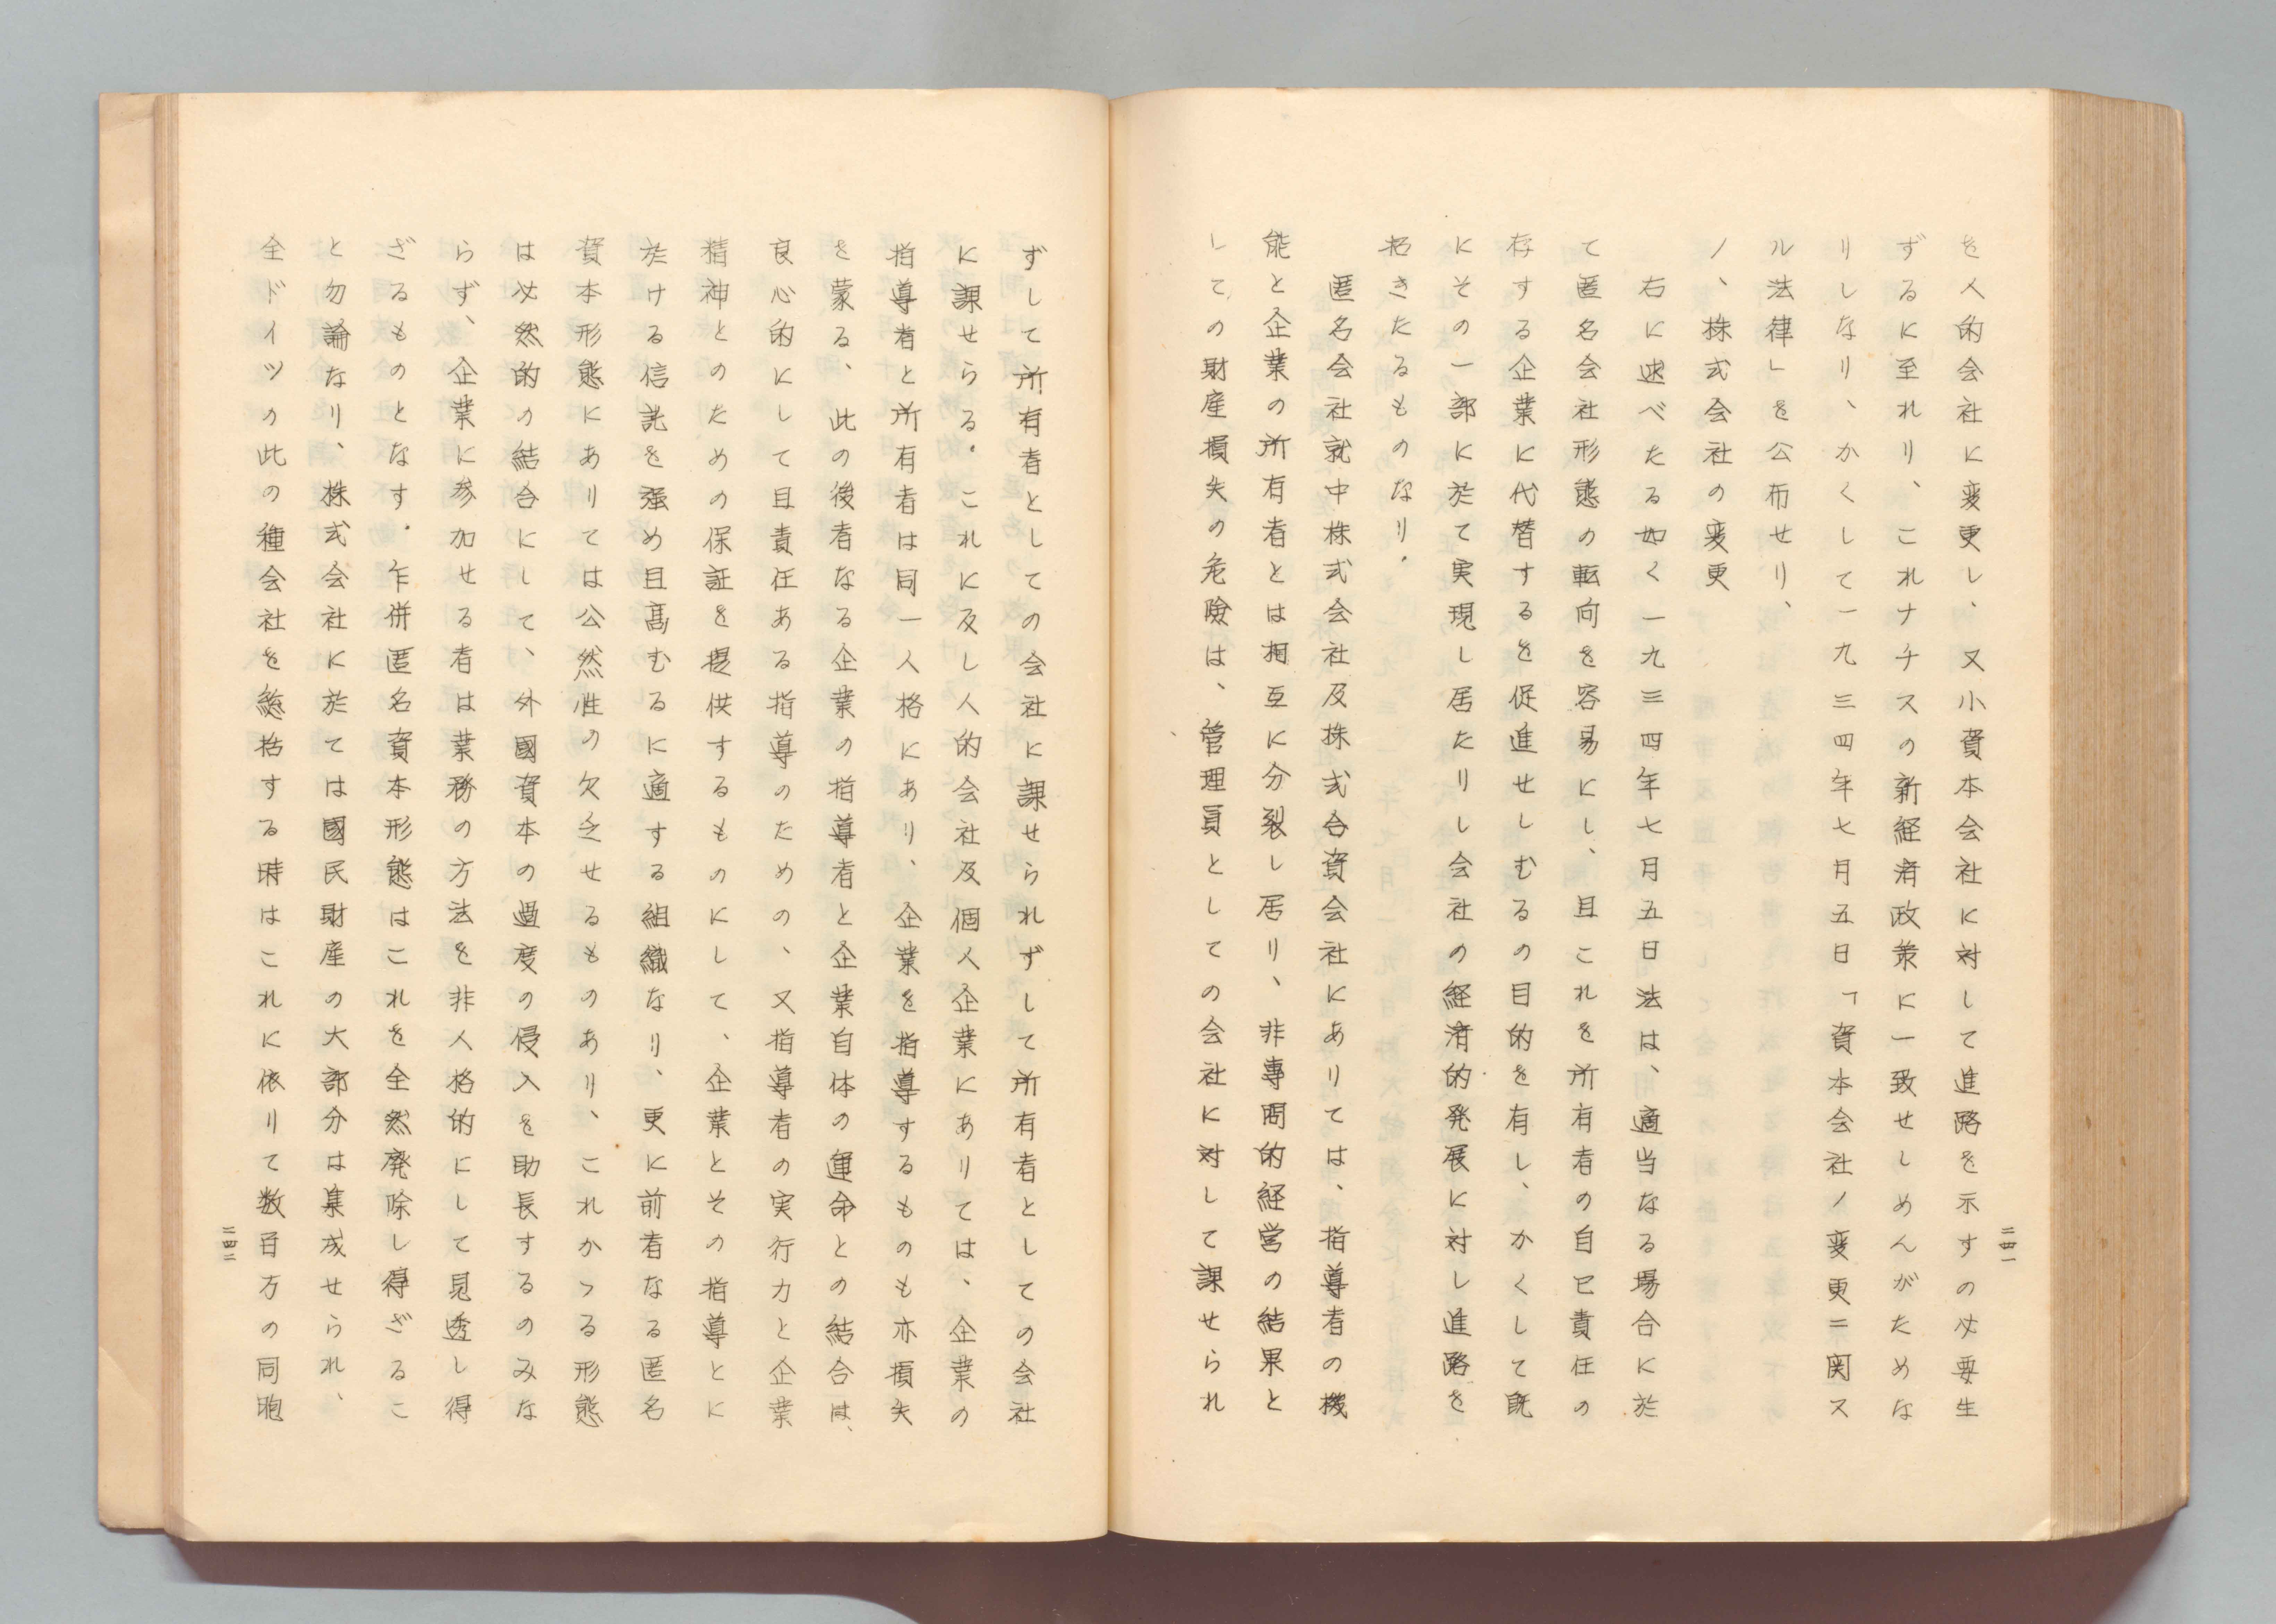 を人的会社に変更し、又小資本会社に対して進路を示すの必要生
ずるに至れり、これナチスの新経済政策に一致せしめんがためな
りしなり、かくして一九三四年七月五日「資本会社ノ変更ニ関ス
ル法律」を公布せり、
ノ、株式会社の変更
右に述べたる如く一九三四年七月五日法は、適当なる場合に於
て匿名会社形態の転向を容易にし、且これを所有者の自己責任の
存する企業に代替するを促進せしむるの目的を有し、かくして既
にその一部に於て実現し居たりし会社の経済的発展に対し進路を
拓きたるものなり。
匿名会社就中株式会社及株式合資会社にありては、指導者の機
能と企業の所有者とは相互に分裂し居り、非専問的経営の結果と
しての財産損失の危険は、管理員としての会社に対して課せられ
二四一
ずして所有者としての会社に課せられずして所有者としての会社
に課せらる。これに反し人的会社及個人企業にありては、企業の
指導者と所有者は同一人格にあり、企業を指導するものも亦損失
を蒙る、此の後者なる企業の指導者と企業自体の運命との結合は、
良心的にして且責任ある指導のための、又指導者の実行力と企業
精神とのための保証を提供するものにして、企業とその指導とに
於ける信託を強め且高むるに適する組織なり、更に前者なる匿名
資本形態にありては公然性の欠乏せるものあり、これかゝる形態
は必然的の結合にして、外國資本の過度の侵入を助長するのみな
らず、企業に参加せる者は業務の方法を非人格的にして見透し得
ざるものとなす。乍併匿名資本形態はこれを全然廃除し得ざるこ
と勿論なり、株式会社に於ては國民財産の大部分は集成せられ、
全ドイツの此の種会社を総括する時はこれに依りて数百万の同胞
二四二